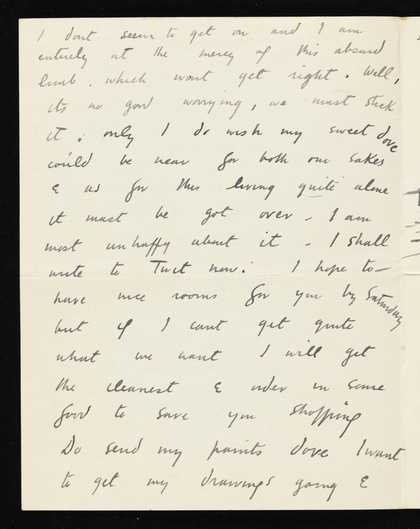 I dont seem to get on and I am
entirely at the mercy of this absurd
limb. which wont get right. Well,
its no good worrying, we must stick
it; only I do wish my sweet dove
could be near for both our sakes
& as for this living quite alone
it must be got over - I am
most unhappy about it - I shall
write to Twit now. I hope to -
have nice rooms for you by Saturday
but if I cant get quite
what we want I will get
the cleanest & order in some
food to save you shopping
Do send my paints dove I want
to get my drawings going &